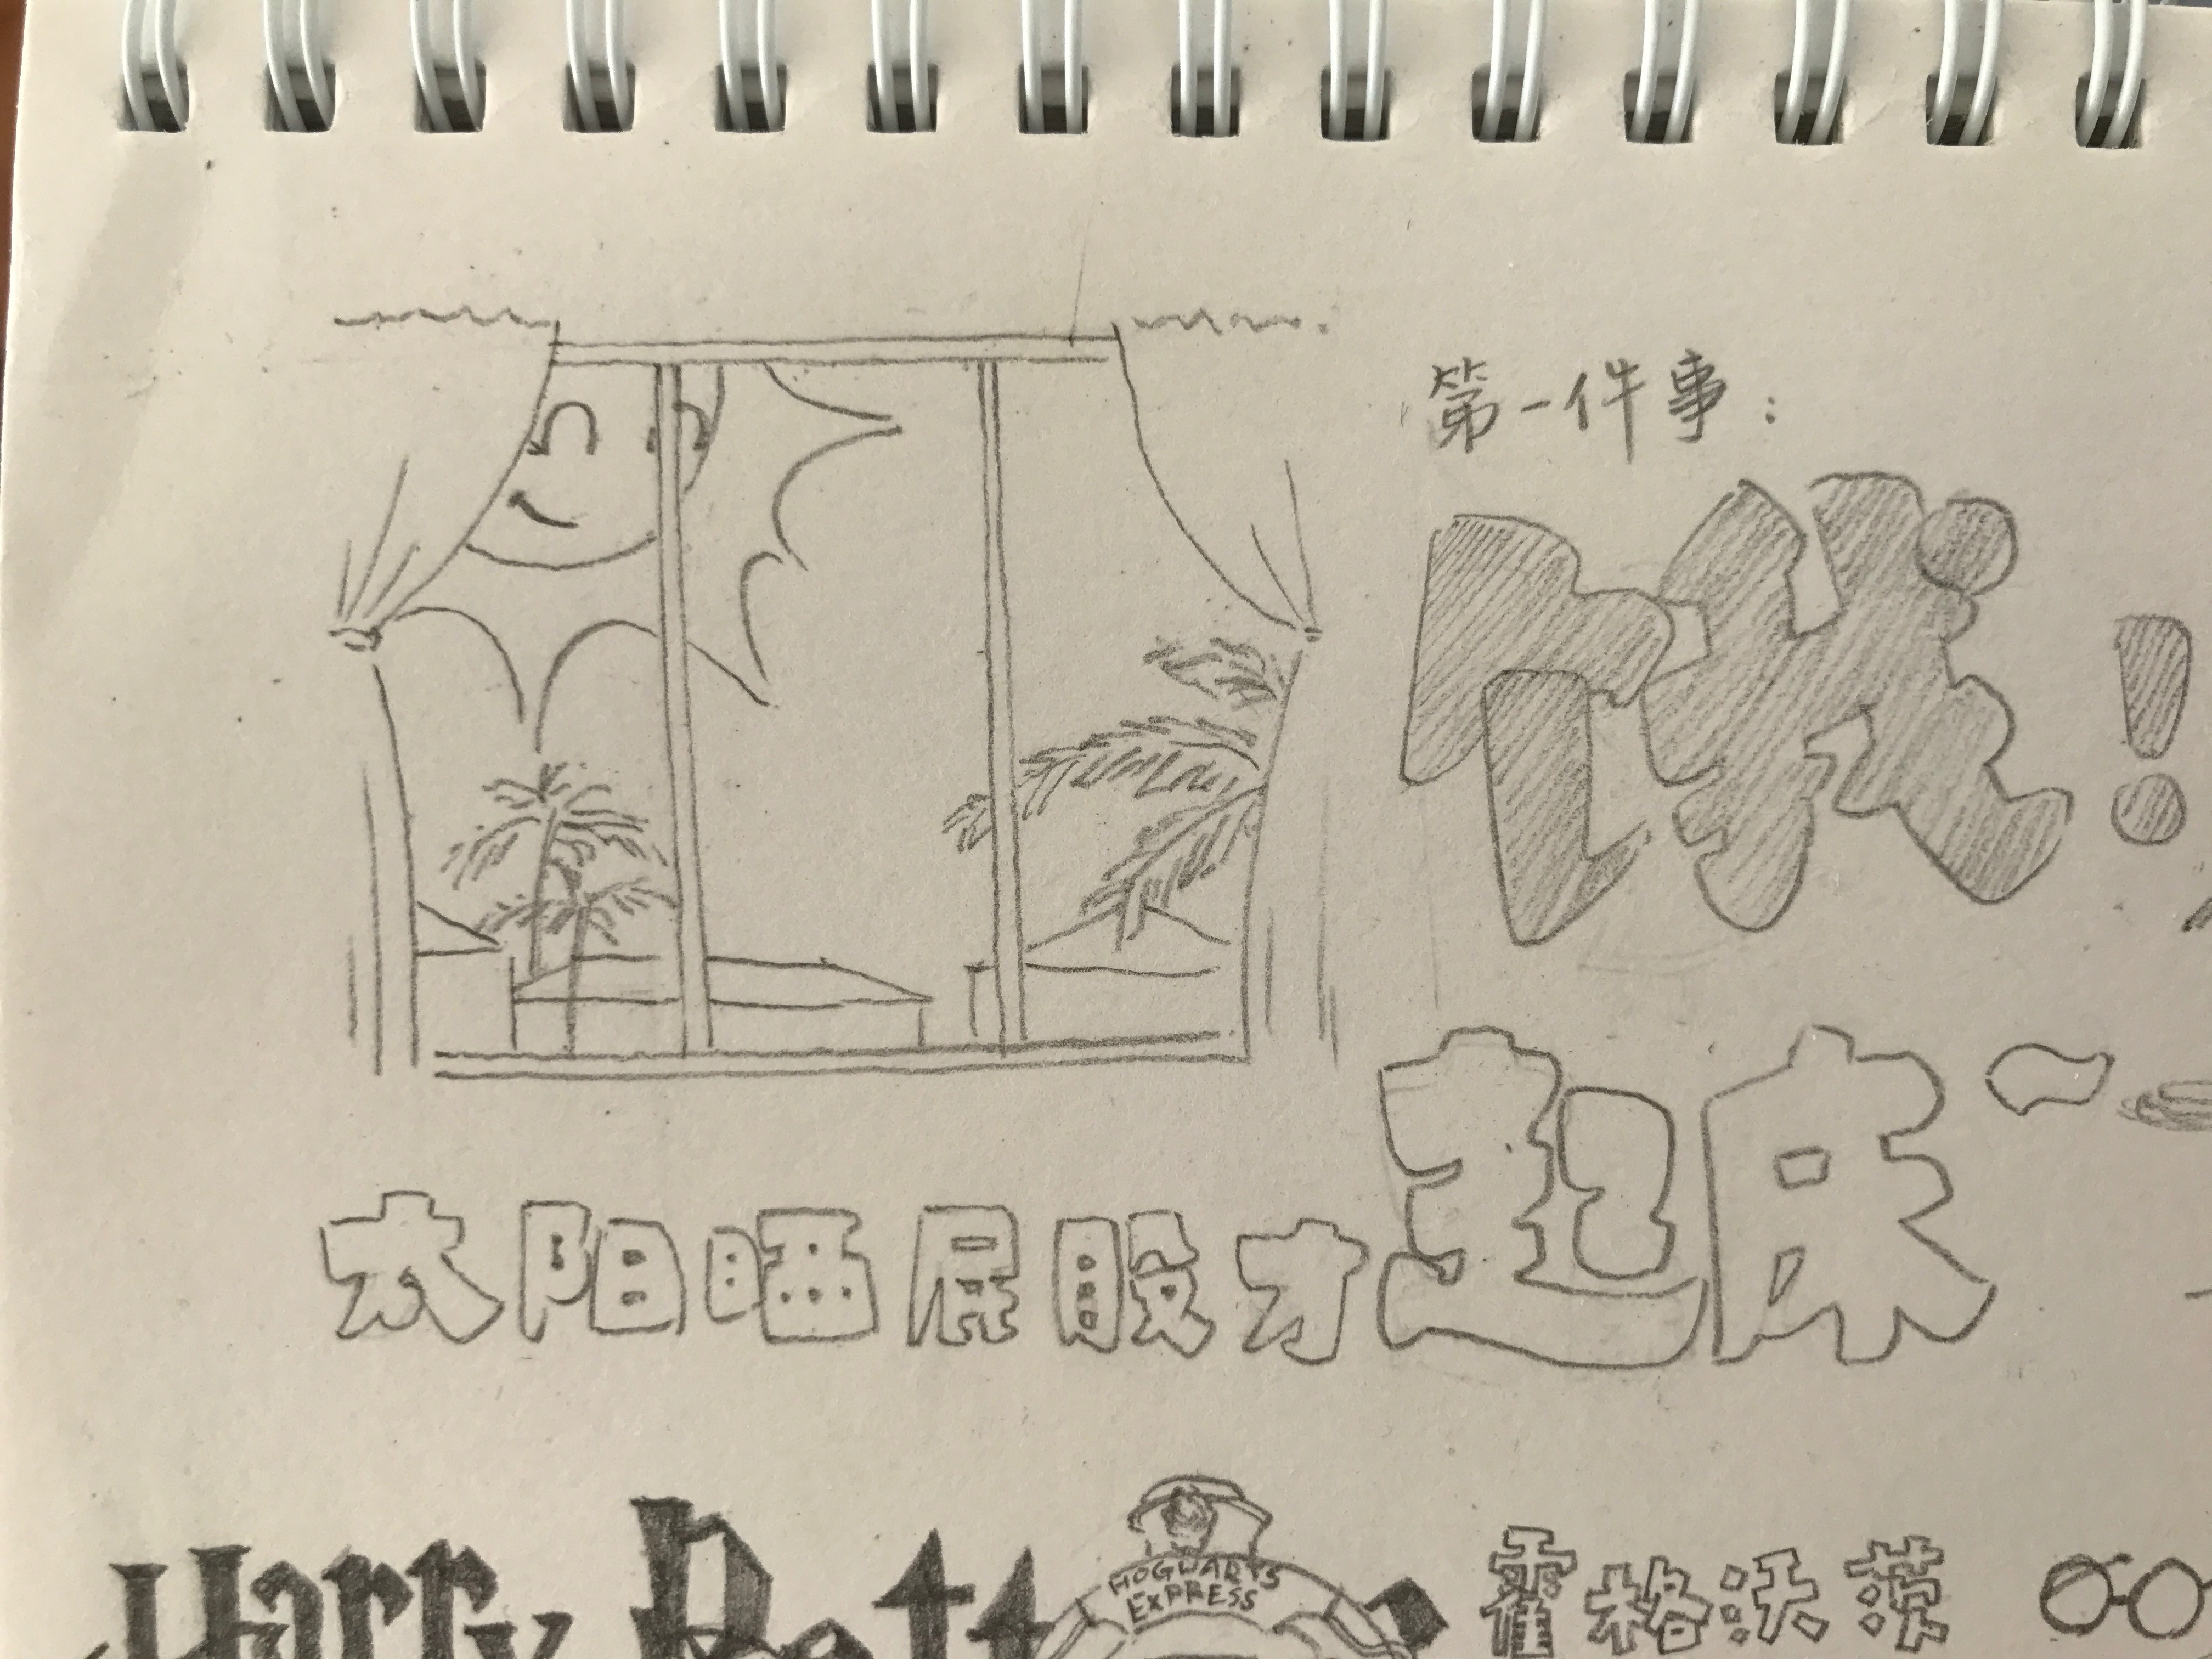 第一件事：
！
太阳晒屁股才起床
Harry Pott
HOGWARTS
EXPRESS
霍格沃茨